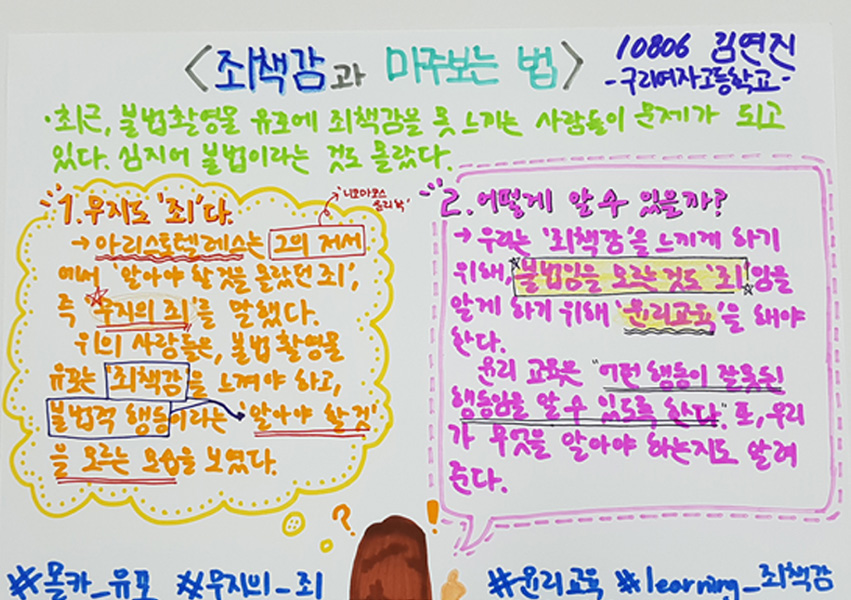 <죄책감과 마주보는 법>
10806 김연진
-구리여자고등학교-
·최근, 불법촬영물 유포에 죄책감을 못 느끼는 사람들이 문제가 되고
있다. 심지어 불법이라는 것도 몰랐다.
1. 무지도 '죄'다.
'니코마코스 윤리학'
→ 아리스토텔레스는 그의 저서
에서 '알아야 할 것을 몰랐던 죄',
즉 '무지의 죄'를 말했다.
위의 사람들은, 불법 촬영물
유포는 '죄책감'을 느껴야 하고,
불법적 행동이라는 '알아야 할 것'
을 모르는 모습을 보였다.
2. 어떻게 알 수 있을까?
→ 우리는 '죄책감'을 느끼게 하기
위해, 불법임을 모르는 것도 '죄'임을
알게 하기 위해 '윤리교육'을 해야
한다.
윤리 교육은 "어떤 행동이 잘못된
행동임을 알 수 있도록 한다". 또, 우리
가 무엇을 알아야 하는지도 알려
준다.
? !
#몰카_유포 #무지의_죄 #윤리교육 #learning_죄책감